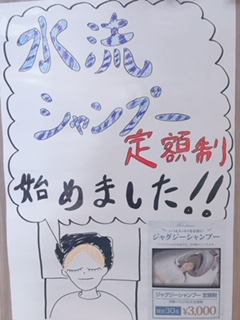 水流
シャンプー
定額制
始めました!!
ジャグジーシャンプー
ジャグジーシャンプー 定額制
¥3,000